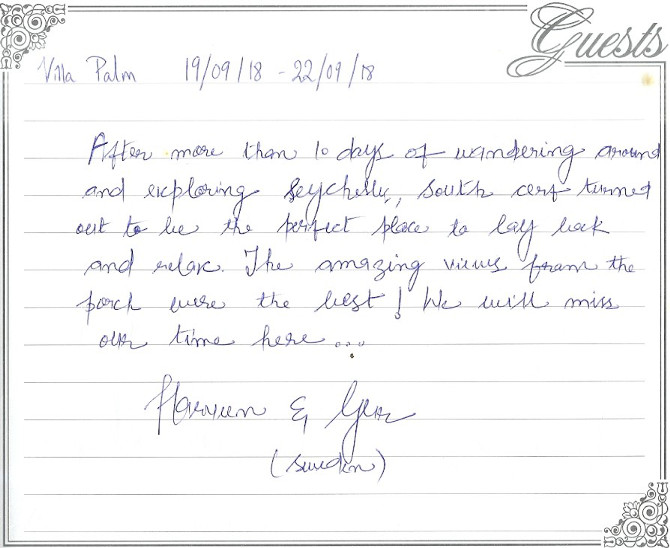 Guests
Villa Palm 19/09/18 - 22/09/18
After more than 10 days of wandering around
and exploring Seychelles, South cerf turned
out to be the perfect place to lay back
and relax. The amazing views from the
porch were the best! We will miss
our time here...
&
(Sweden)